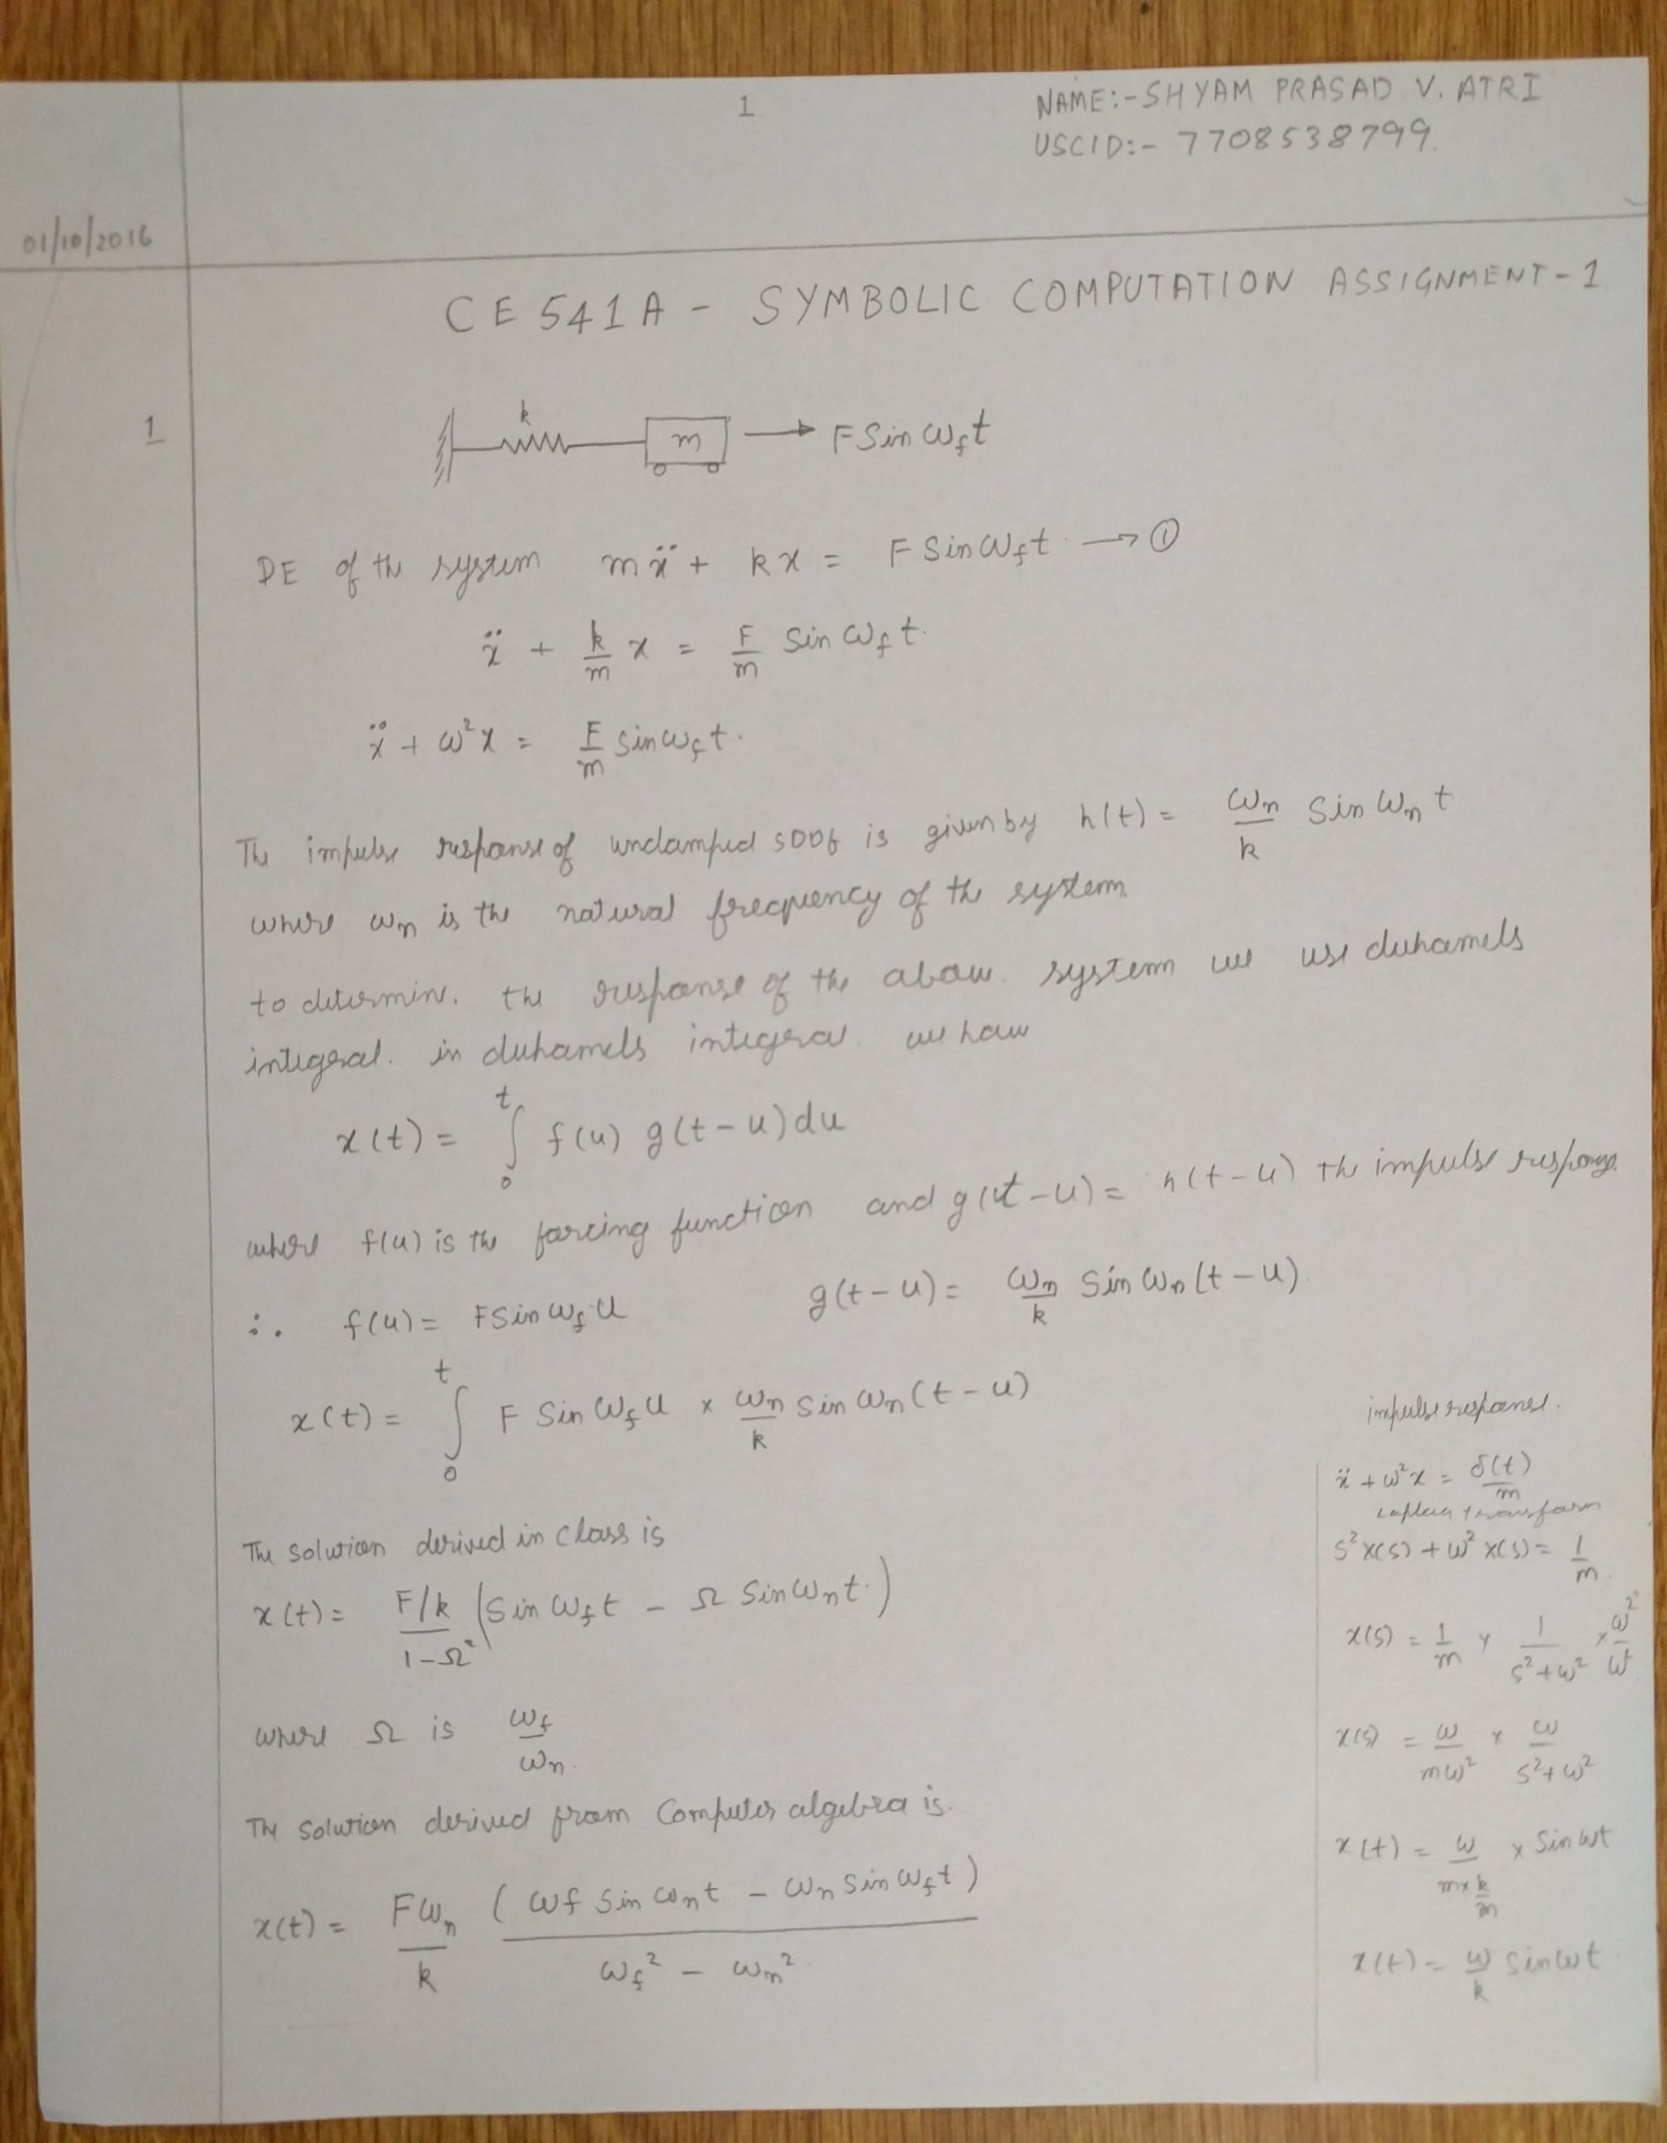 1
NAME:- SHYAM PRASAD V. ATRI
USCID:- 7708538799.
01/10/2016
CE 541A - SYMBOLIC COMPUTATION ASSIGNMENT-1
1
k
m → F Sin ω_f t
DE of the system mẍ + kx = F Sin ω_f t → ①
ẍ + k/m x = F/m Sin ω_f t.
ẍ + ω²x = F/m sin ω_f t.
The impulse response of undamped SDOf is given by h(t) = ω_n/k Sin ω_n t
where ω_n is the natural frequency of the system.
to determine. the response of the above. system we use duhamels
integral. in duhamels integral we have
x(t) = ∫₀ᵗ f(u) g(t-u) du
where f(u) is the forcing function and g(t-u) = h(t-u) the impulse response.
∴ f(u) = F Sin ω_f u g(t-u) = ω_n/k Sin ω_n (t-u)
x(t) = ∫₀ᵗ F Sin ω_f u × ω_n/k sin ω_n (t-u)
The solution derived in class is
x(t) = (F/k)/(1-Ω²) (Sin ω_f t - Ω Sin ω_n t.)
where Ω is ω_f/ω_n.
The solution derived from Computer algebra is.
x(t) = Fω_n/k (ωf Sin ω_n t - ω_n Sin ω_f t)/(ω_f² - ω_n²)
impulse response.
ẍ + ω²x = δ(t)/m
laplace transform
s²x(s) + ω² x(s) = 1/m.
x(s) = 1/m × 1/(s²+ω²) × ω²/ω²
x(s) = ω/(mω²) × ω/(s²+ω²)
x(t) = ω/(m×k/m) × Sin ωt
x(t) = ω/k Sin ωt.